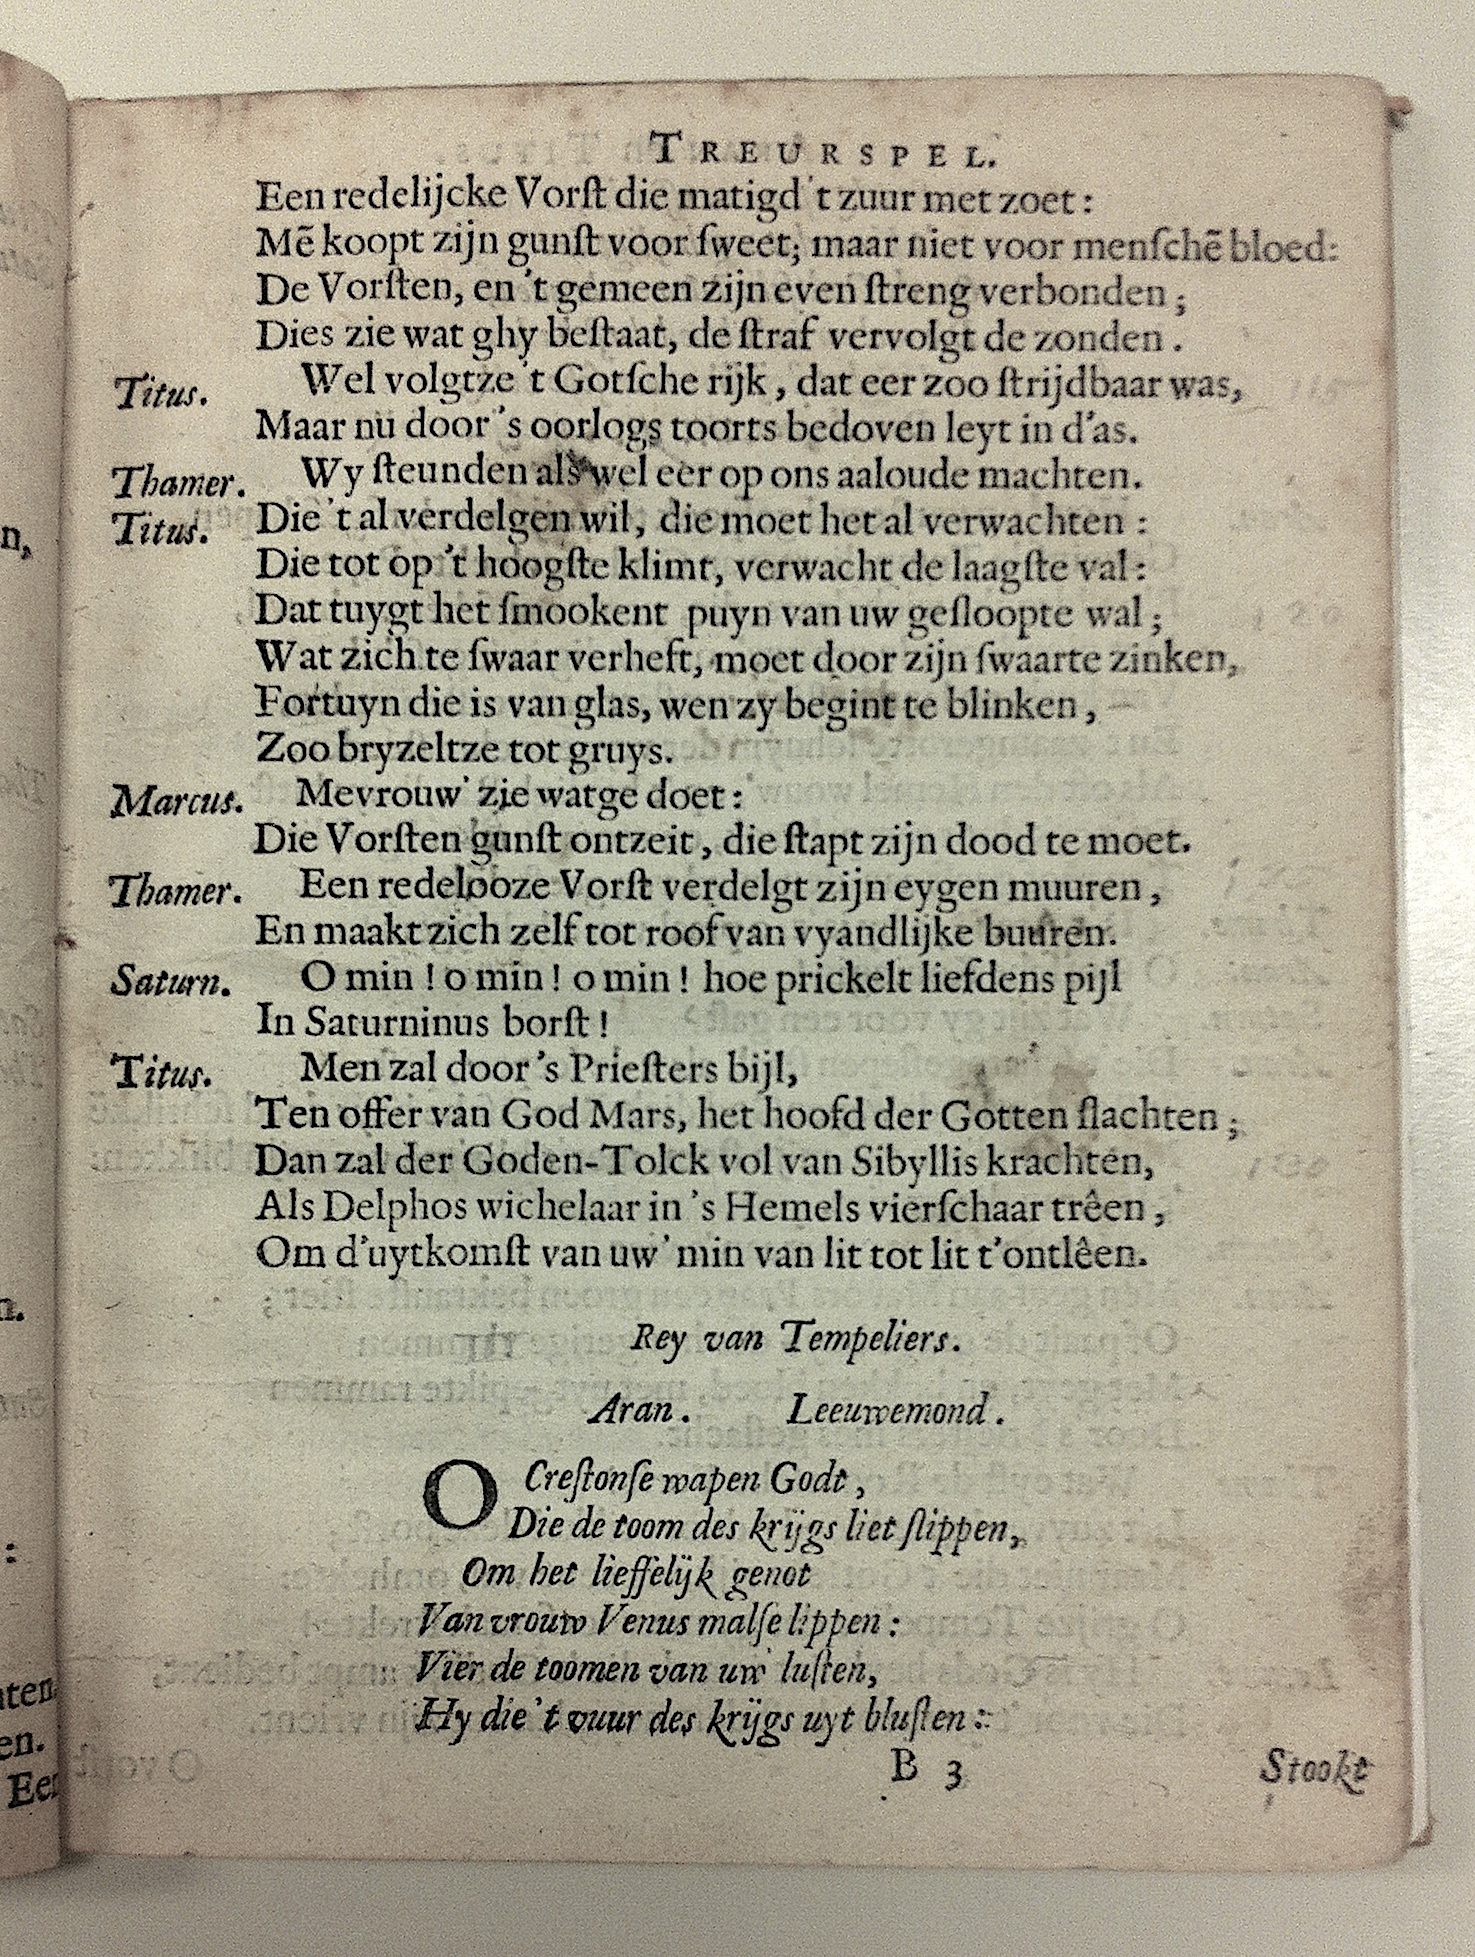 TREURSPEL.
Een redelijcke Vorſt die matigd 't zuur met zoet:
Mẽ koopt zijn gunſt voor ſweet; maar niet voor menſchẽ bloed:
De Vorſten, en 't gemeen zijn even ſtreng verbonden;
Dies zie wat ghy beſtaat, de ſtraf vervolgt de zonden.
Titus. Wel volgtze 't Gotſche rijk, dat eer zoo ſtrijdbaar was,
Maar nu door 's oorlogs toorts bedoven leyt in d'as.
Thamer. Wy ſteunden als wel eer op ons aaloude machten.
Titus. Die 't al verdelgen wil, die moet het al verwachten:
Die tot op 't hoogſte klimt, verwacht de laagſte val:
Dat tuygt het ſmookent puyn van uw geſloopte wal;
Wat zich te ſwaar verheft, moet door zijn ſwaarte zinken,
Fortuyn die is van glas, wen zy begint te blinken,
Zoo bryzeltze tot gruys.
Marcus. Mevrouw' zie watge doet:
Die Vorſten gunſt ontzeit, die ſtapt zijn dood te moet.
Thamer. Een redelooze Vorſt verdelgt zijn eygen muuren,
En maakt zich zelf tot roof van vyandlijke buuren.
Saturn. O min! o min! o min! hoe prickelt liefdens pijl
In Saturninus borſt!
Titus. Men zal door 's Prieſters bijl,
Ten offer van God Mars, het hoofd der Gotten ſlachten;
Dan zal der Goden-Tolck vol van Sibyllis krachten,
Als Delphos wichelaar in 's Hemels vierſchaar trêen,
Om d'uytkomſt van uw' min van lit tot lit t'ontlêen.
Rey van Tempeliers.
Aran. Leeuwemond.
O Creſtonſe wapen Godt,
Die de toom des krijgs liet ſlippen,
Om het lieffelijk genot
Van vrouw Venus malſe lippen:
Vier de toomen van uw' luſten,
Hy die 't vuur des krijgs uyt bluſten:
B 3
Stookt
n,
n.
:
ten
en.
Een